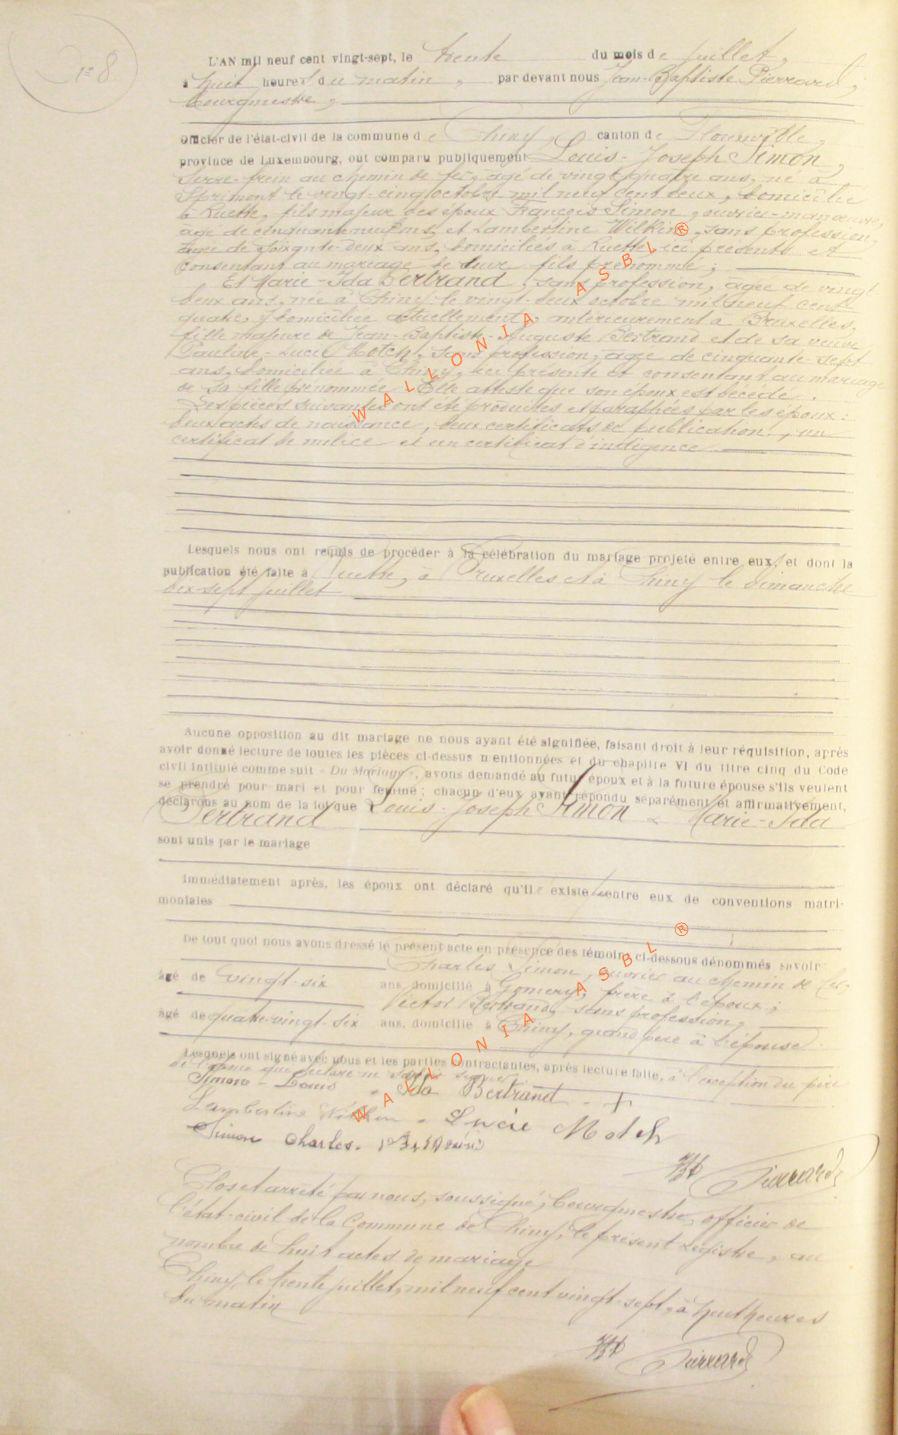 N° 8
L'AN mil neuf cent vingt-sept, le trente du mois de juillet,
à huit heures du matin, par devant nous Jean-Baptiste Pierrard,
bourgmestre,
Officier de l'état-civil de la commune de Chiny, canton de Florenville,
province de Luxembourg, ont comparu publiquement Louis-Joseph Simon,
serre-frein au chemin de fer, âgé de vingt-quatre ans, né à
le vingt-cinq octobre mil neuf cent deux, domicilié
à Ruette, fils majeur des époux François Simon, ouvrier-manœuvre,
âgé de cinquante-neuf ans, et Lambertine Wilkin, sans profession,
âgée de soixante-deux ans, domiciliés à Ruette ici présents et
consentant au mariage de leur fils prénommé;
Et Marie-Ida Bertrand, sans profession, âgée de vingt
deux ans, née à Chiny le vingt-deux octobre mil neuf cent
quatre, y domiciliée actuellement, antérieurement à Bruxelles,
fille majeure de Jean-Baptiste-Auguste Bertrand et de sa veuve
Pauline-Lucie Motch, sans profession, âgée de cinquante-sept
ans, domiciliée à Chiny, ici présente et consentant au mariage
de sa fille prénommée. Elle atteste que son époux est décédé.
Les pièces suivantes ont été produites et paraphées par les époux:
deux actes de naissance, deux certificats de publication, un
certificat de milice et un certificat d'indigence
Lesquels nous ont requis de procéder à la célébration du mariage projeté entre eux et dont la
publication été faite à Ruette, à Bruxelles et à Chiny le dimanche
dix-sept juillet
Aucune opposition au dit mariage ne nous ayant été signifiée, faisant droit à leur réquisition, après
avoir donné lecture de toutes les pièces ci-dessus mentionnées et du chapitre VI du titre cinq du Code
civil intitulé comme suit « Du Mariage », avons demandé au futur époux et à la future épouse s'ils veulent
se prendre pour mari et pour femme; chacun d'eux ayant répondu séparément et affirmativement,
déclarons au nom de la loi que Louis-Joseph Simon & Marie-Ida
Bertrand
sont unis par le mariage
Immédiatement après, les époux ont déclaré qu'il existe entre eux de conventions matri-
moniales
De tout quoi nous avons dressé le présent acte en présence des témoins ci-dessous dénommés savoir
Charles Simon, ouvrier au chemin de fer,
âgé de vingt-six ans, domicilié à Gomery, frère à l'époux;
Victor Bertrand, sans profession,
âgé de quatre-vingt-six ans, domicilié à Chiny, grand-père à l'épouse
Lesquels ont signé avec nous et les parties contractantes, après lecture faite, à l'exception du père
de l'époux qui déclare ne savoir signer
Simon - Louis - Ida Bertrand - +
Lambertine Wilkin - Lucie Motch
Simon Charles.
JB Pierrard
Clos et arrêté par nous, soussigné, bourgmestre, officier de
l'état-civil de la Commune de Chiny, le présent registre, au
nombre de huit actes de mariage
Chiny, le trente juillet, mil neuf cent vingt-sept, à huit heures
du matin
JB Pierrard
WALLONIA ASBL ®
WALLONIA ASBL ®